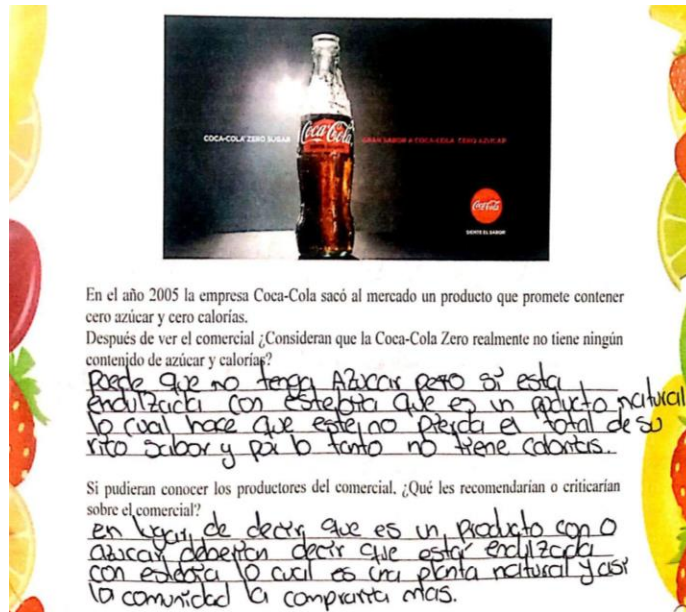 COCA-COLA ZERO SUGAR
Coca-Cola
GRAN SABOR A COCA-COLA. ZERO AZÚCAR
Coca-Cola
SIENTE EL SABOR
En el año 2005 la empresa Coca-Cola sacó al mercado un producto que promete contener
cero azúcar y cero calorías.
Después de ver el comercial ¿Consideran que la Coca-Cola Zero realmente no tiene ningún
contenido de azúcar y calorías?
Puede que no tenga Azucar pero si esta
endulzada con estebia que es un producto natural
lo cual hace que este no pierda el total de su
rico sabor y por lo tanto no tiene calorias.
Si pudieran conocer los productores del comercial, ¿Qué les recomendarían o criticarían
sobre el comercial?
en lugar de decir que es un producto con 0
azucar deberian decir que está endulzada
con estebia lo cual es una planta natural y asi
la comunidad la compraria mas.